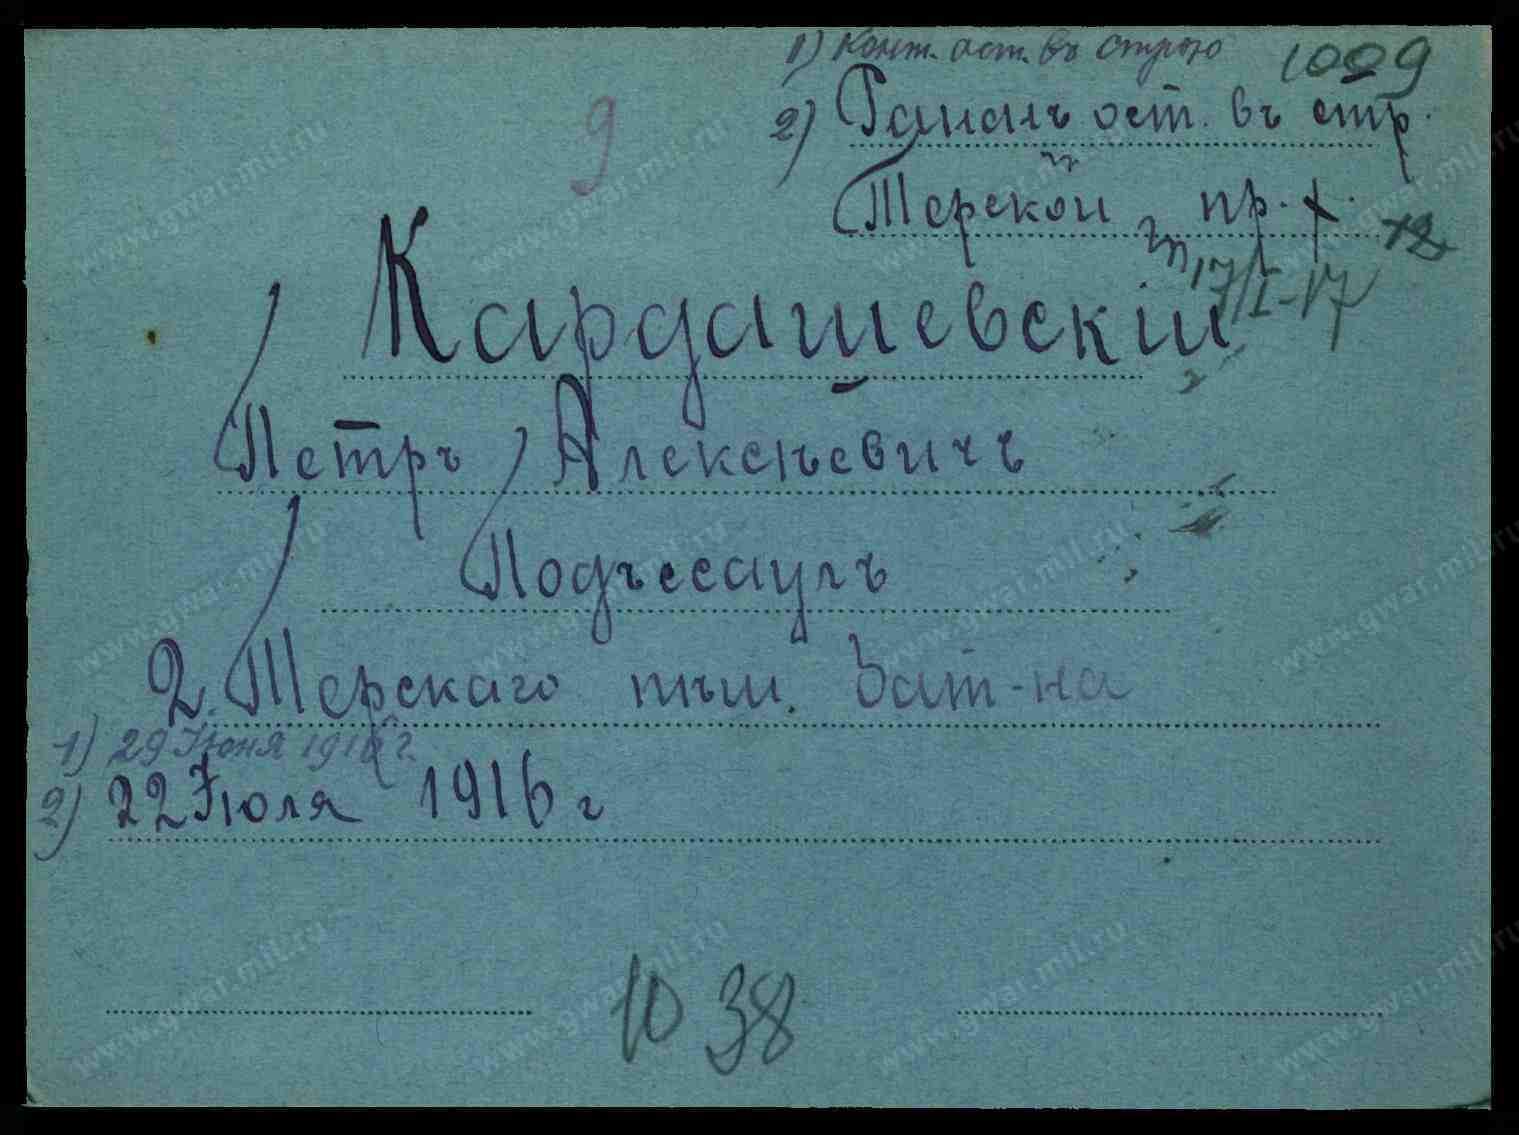 1) Конт. ост. въ строю 1009
9
2) Раненъ ост. въ стр.
Терской пр. х. 12
17/I-17
Кардашевскій
Петръ Алексѣевичъ
Подъесаулъ
2 Терскаго пѣш. бат-на
1) 29 Іюня 1916 г.
2) 22 Іюля 1916 г
10 38
www.gwar.mil.ru